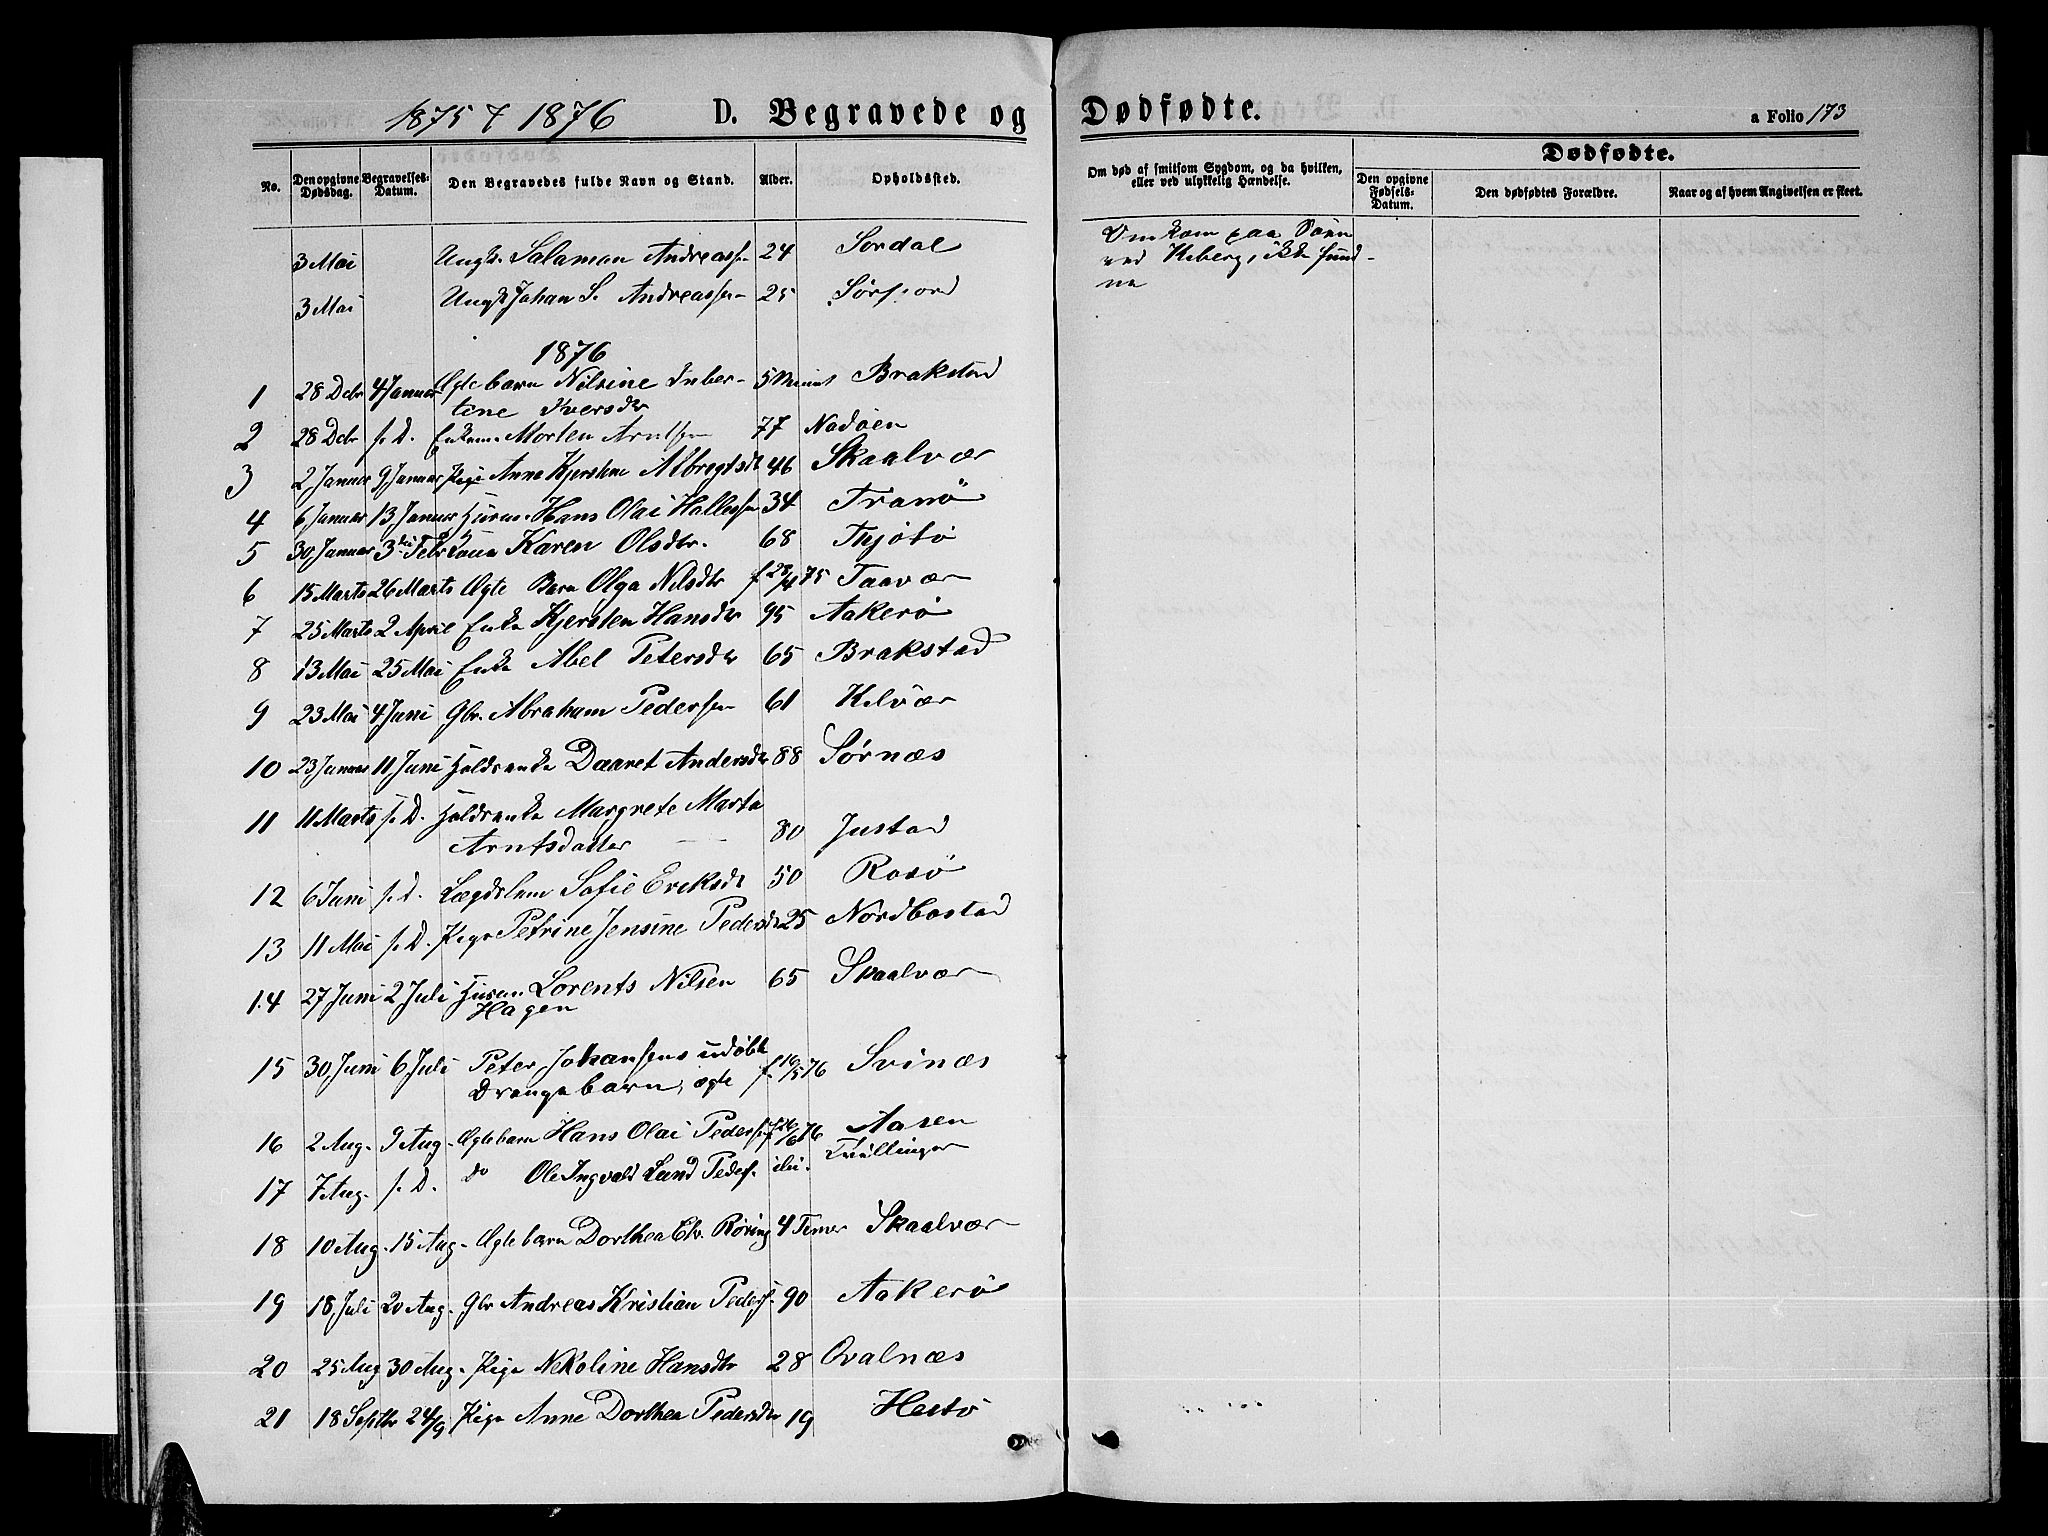 1875 & 1876 D. Begravede og Dødfødte. a Folio 173
No. Den opgivne Dødsdag. Begravelses-Datum. Den Begravedes fulde Navn og Stand. Alder. Opholdssted. Om død af smitsom Sygdom, og da hvilken, eller ved ulykkelig Hændelse. Dødfødte.
Den opgivne Fødsels-Datum. Den dødfødtes Forældre. Naar og af hvem Angivelsen er skeet.
3 Mai Ungk. Salamon Andreassen 24 Sørdal Omkom paa Søen
ved Kiberg, ikke fund-
ne
3 Mai Ungk Johan S. Andreassen 25 Sørfjord
1876
1 28 Dcbr 4 Januar Ægte barn Nilsine Inber- Brakstad
tine Iversdtr
2 28 Dcbr s. D. Enkem. Morten Arntsen 77 Nadøen
3 2 Januar 9 Januar Pige Anne Kjerstine Albregtsdt 46 Skaalvær
4 6 Januar 13 Januar Husm. Hans Olai Hallessen 34 Tranø
5 30 Januar 3die Febr Kone Karen Olsdtr. 68 Thjøtø
6 15 Marts 26 Marts Ægte Barn Olga Nilsdtr f 28/4 75 Taavær
7 25 Marts 2 April Enke Kjersten Hansdtr 95 Aakerø
8 13 Mai 25 Mai Enke Abel Petersdtr 65 Brakstad
9 23 Mai 4 Juni Gbr. Abraham Pedersen 61 Kilvær
10 23 Januar 11 Juni Holdsenke Daaret Andersdtr 88 Sørnæs
11 11 Marts s. D. Holdsenke Margrete Marta
Arntsdatter 80 Justad
12 6 Juni s. D. Lægdslem Sofie Eriksdt 50 Rosø
13 11 Mai s. D. Pige Petrine Jensine Pedersdtr 25 Nordbostad
14 27 Juni 2 Juli Husm Lorents Nilsen 65 Skaalvær
Hagen
15 30 Juni 6 Juli Peter Johansens udøbte f. 16/5 76 Svinæs
Drengebarn, ægte
16 2 Aug. 9 Aug. Ægte barn Hans Olai Pedersen f 26/6 76 Aasen
Tvillinger
17 7 Aug. s. D. do Ole Ingvald Lund Peders.
18 10 Aug. 15 Aug. Ægte barn Dorthea Elv. Røring 4 Timer Skaalvær
19 18 Juli 20 Aug. Gbr Andreas Kristian Peders. 90 Aakerø
20 25 Aug 30 Aug. Pige Nekoline Hansdtr 28 Qvalnæs
21 18 Septbr 24/9 Pige Anne Dorthea Pedersdtr 19 Hestø